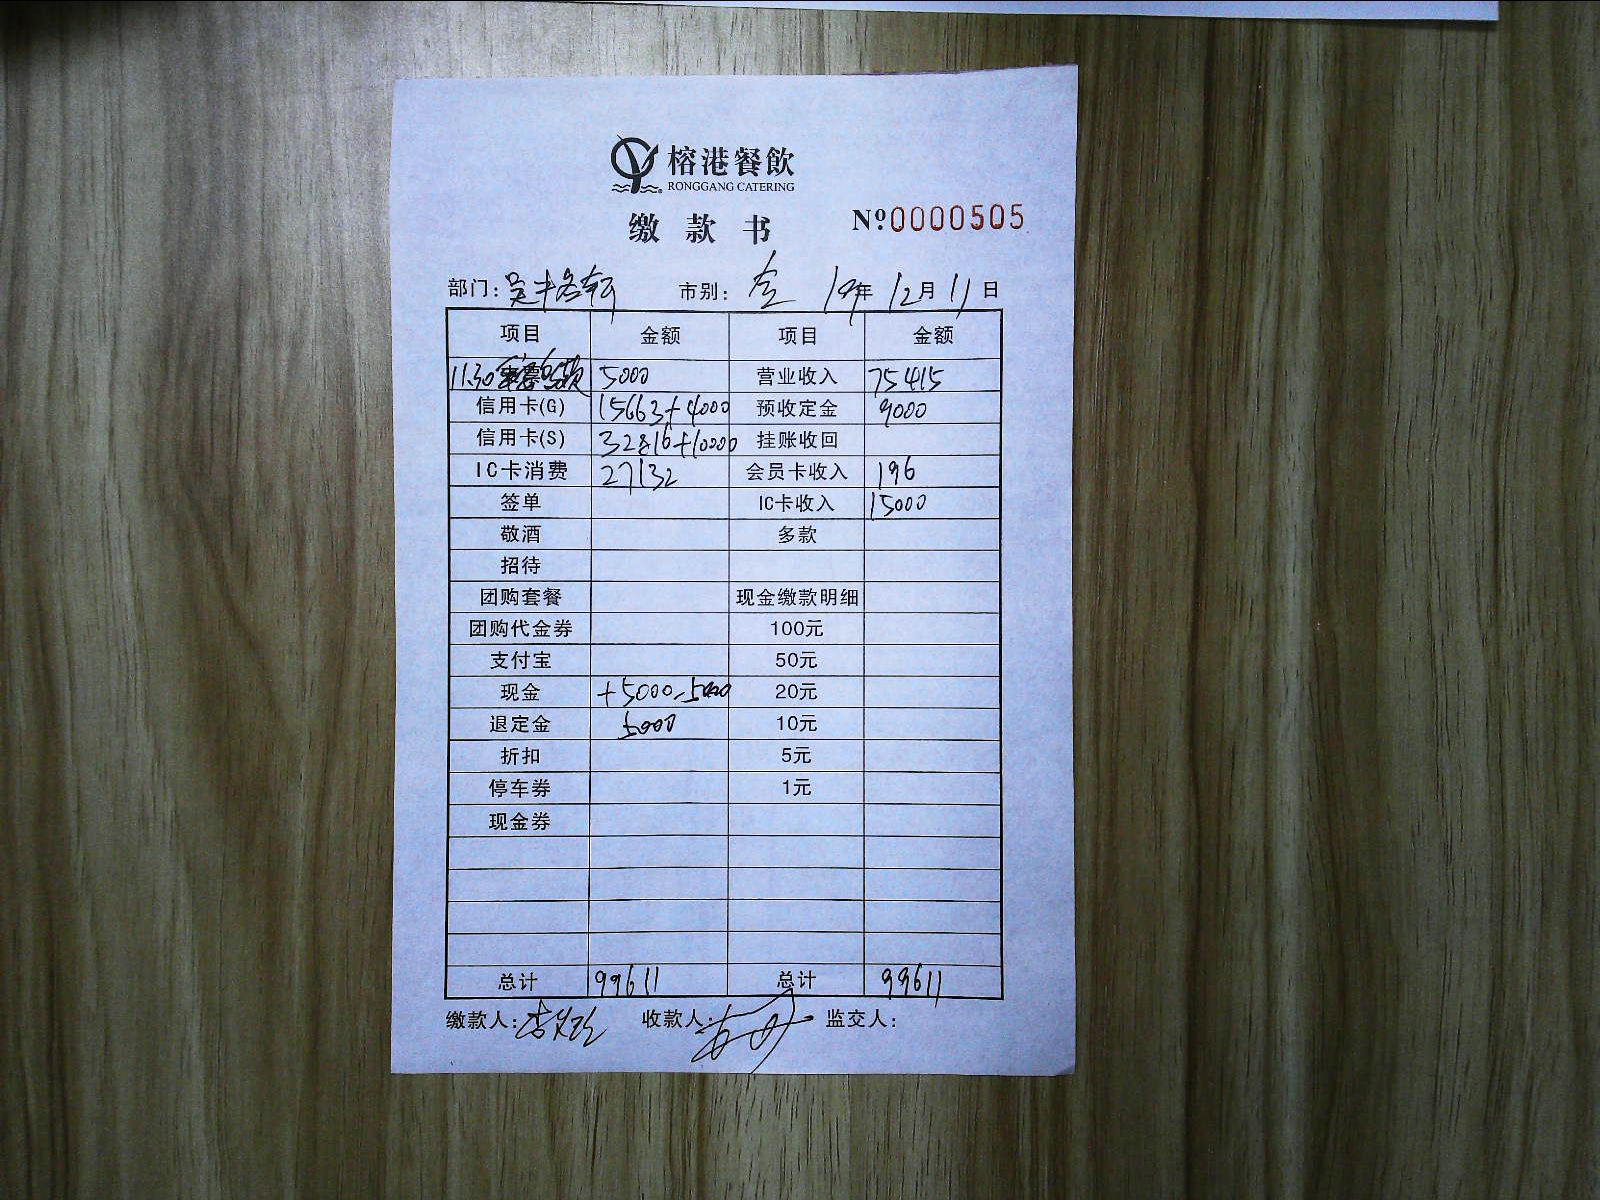 榕港餐飲
RONGGANG CATERING
缴款书 Nº 0000505
部门: 市别: 全 19年 12月 11日
项目 金额 项目 金额
11.30 5000 营业收入 75415
信用卡(G) 15663+4000 预收定金 9000
信用卡(S) 32816+10000 挂账收回
IC卡消费 27132 会员卡收入 196
签单 IC卡收入 15000
敬酒 多款
招待
团购套餐 现金缴款明细
团购代金券 100元
支付宝 50元
现金 +5000-5000 20元
退定金 5000 10元
折扣 5元
停车券 1元
现金券
总计 99611 总计 99611
缴款人: 收款人: 监交人: